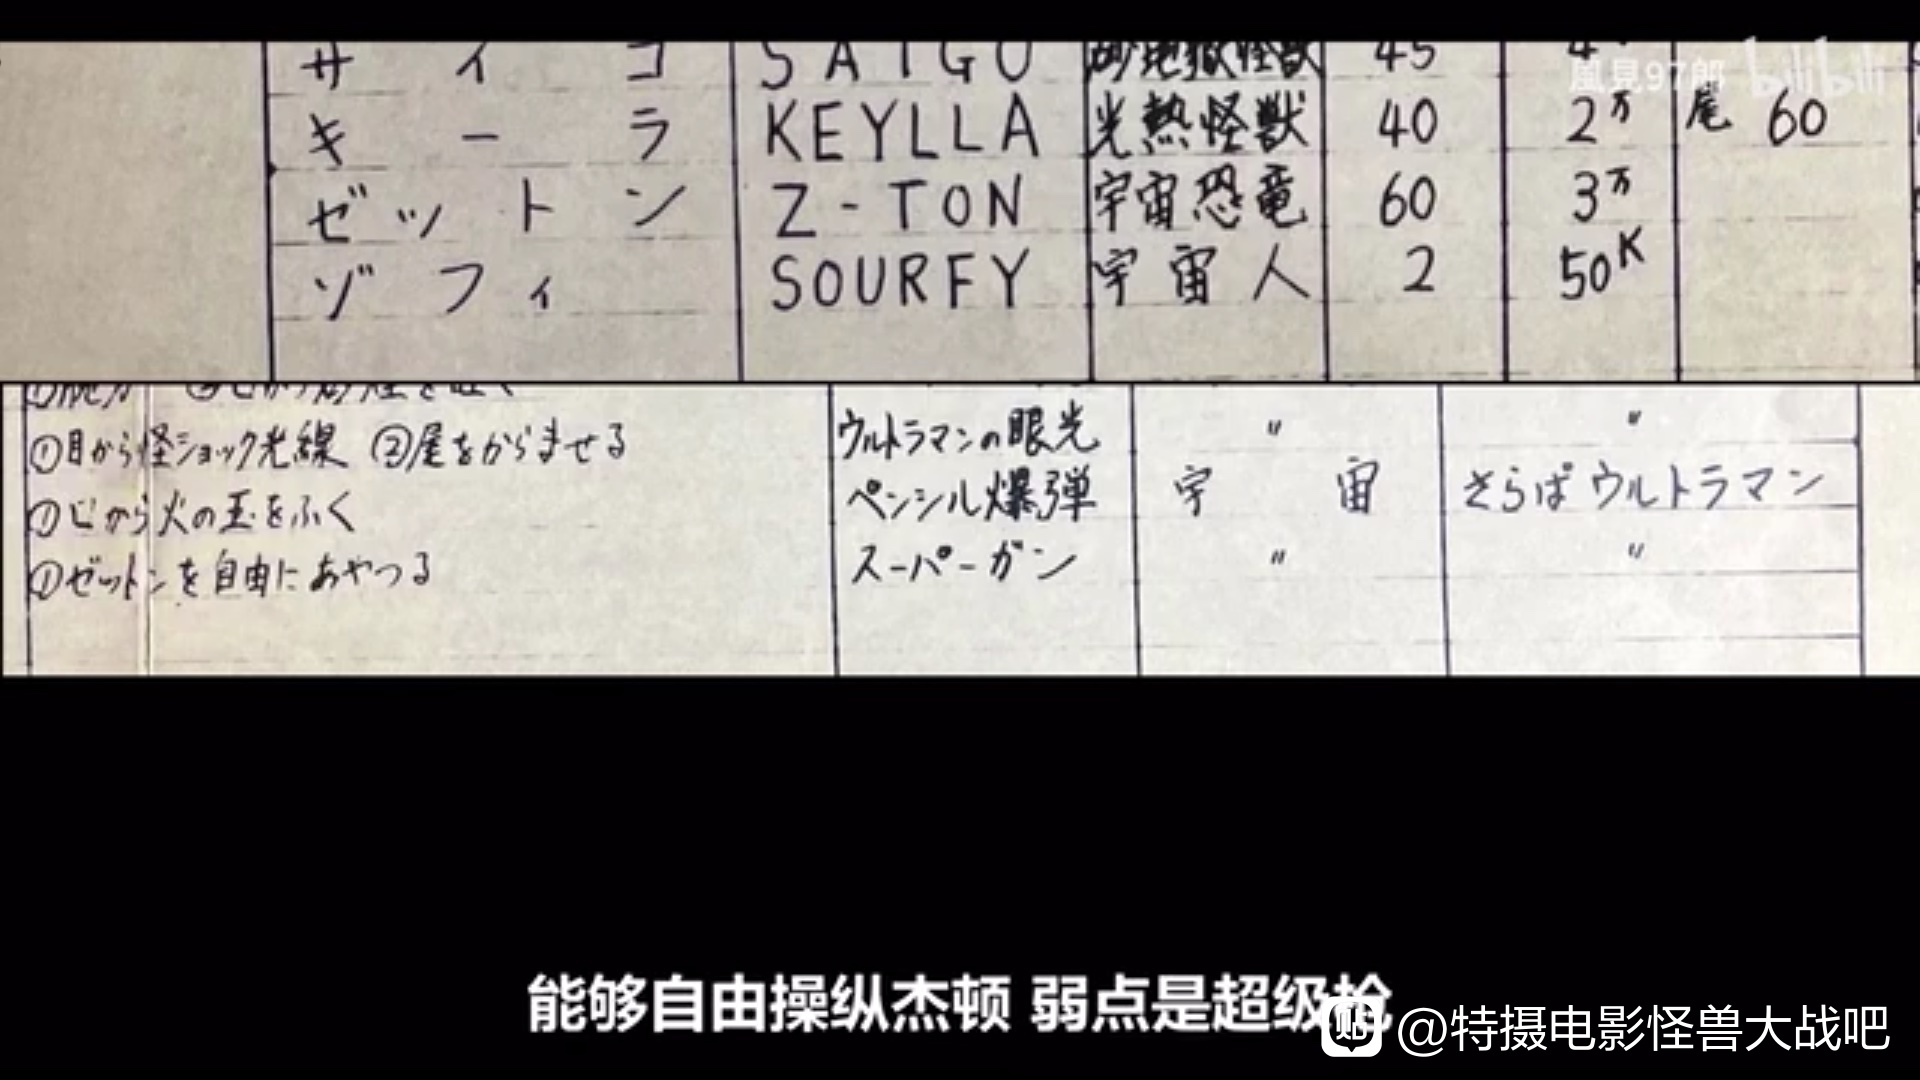 サイコ SAIGO 砂地獄怪獣 45
風見97郎 bilibili
キーラ KEYLLA 光熱怪獣 40 2万 尾 60
ゼットン Z-TON 宇宙恐竜 60 3万
ゾフィ SOURFY 宇宙人 2 50K
①目から怪ショック光線 ②尾をからませる ウルトラマンの眼光 〃 〃
①口から火の玉をふく ペンシル爆弾 宇宙 さらばウルトラマン
①ゼットンを自由にあやつる スーパーガン 〃 〃
能够自由操纵杰顿 弱点是超级枪
贴 @特摄电影怪兽大战吧